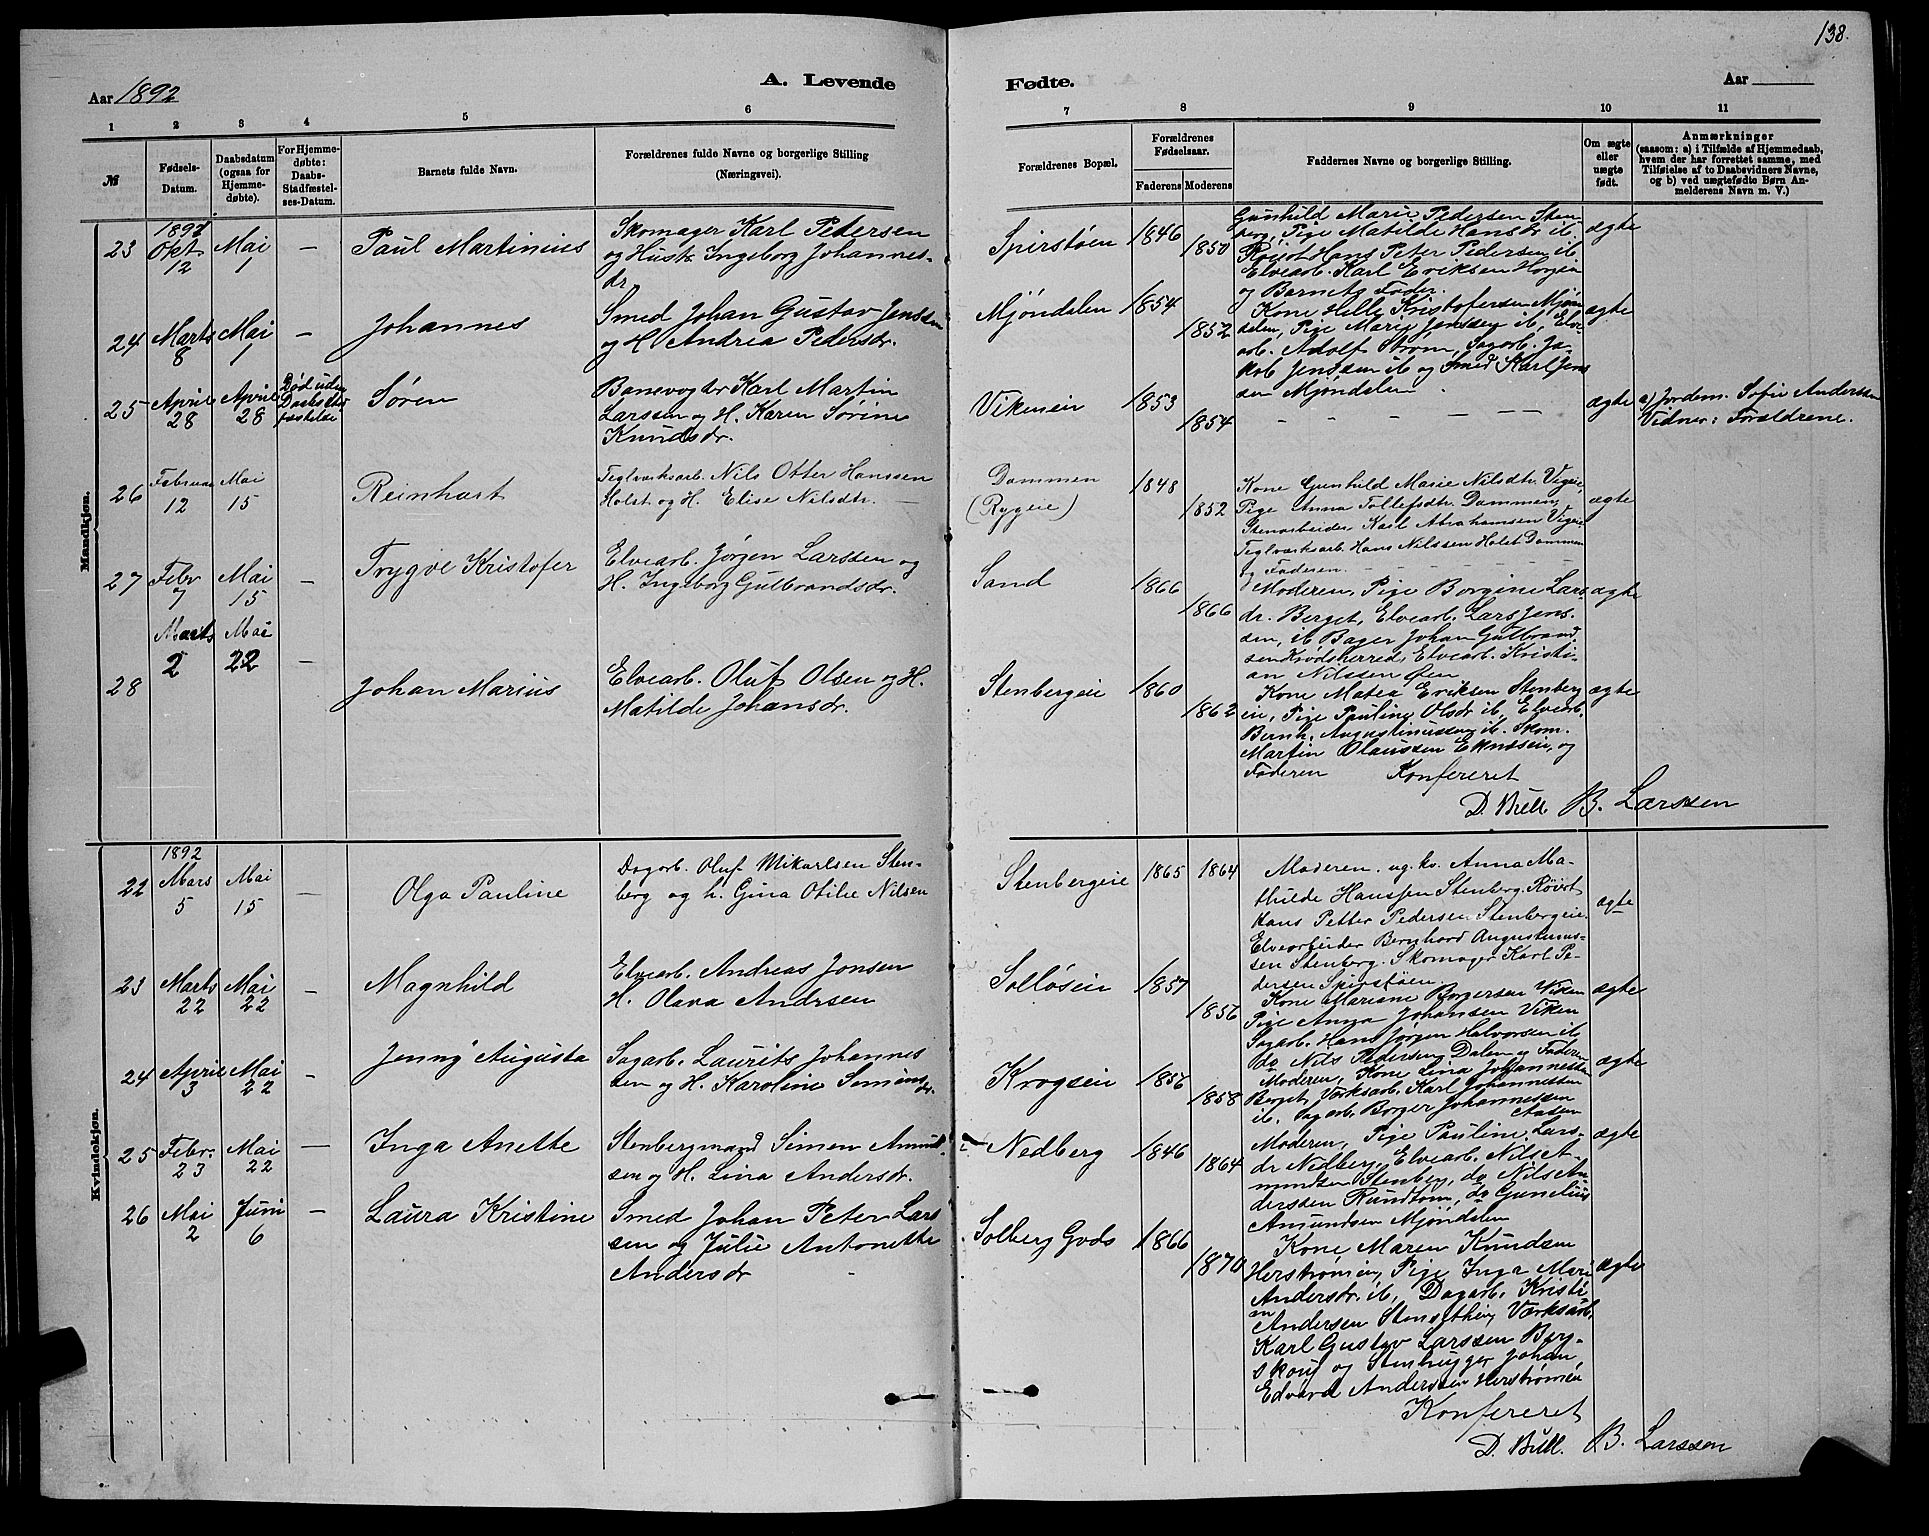 138.
Aar 1892
A. Levende
Fødte.
Aar
1 2 3 4 5 6
7 8 9 10 11
№
Fødsels-
Datum.
Daabsdatum
(ogsaa for
Hjemme-
døbte).
For Hjemme-
døbte:
Daabs-
Stadfæstel-
ses-Datum.
Barnets fulde Navn.
Forældrenes fulde Navne og borgerlige Stilling
(Næringsvei).
Forældrenes Bopæl.
Forældrenes
Fødselsaar.
Faderens Moderens
Faddernes Navne og borgerlige Stilling.
Om ægte
eller
uægte
født.
Anmærkninger
(saasom: a) i Tilfælde af Hjemmedaab,
hvem der har forrettet samme, med
Tilføielse af to Daabsvidners Navne,
og b) ved uægtefødte Børn An-
melderens Navn m. V.)
Mandkjøn.
23
Okt
12
Mai
1
—
Paul Martinius
Skomager Karl Petersen
og Hustr Ingeborg Johannes-
dr
Spirstøen
1846
1850
Gunhild Marie Pedersen Sten
berg, Pige Matilde Hansdr ib.
Røiert Hans Peter Pedersen ib
Elvearb. Karl Eriksen Horgen
og Barnets Fader.
ægte
24
Marts
8
Mai
1
—
Johannes
Smed Johan Gustav Jenssen
og H. Andrea Pedersdr.
Mjøndalen
1854
1852
Kone Helle Kristofersen Mjøn
dalen, Pige Marie Jenssen ib, Elv
arb. Adolf Strøm, Sagarb. Ja-
kob Jenssen ib og Smed Karl Jens
sen Mjøndalen
ægte
25
April
28
April
28
Død uden
Daabs
Søren
Banevogter Karl Martin
Larssen og H. Karen Sørine
Knudsdr.
Vikeneie
1853
1854
— — — — —
ægte
a) Jordem. Sofie Anderssen
Vidner: Forældrene.
26
Februar
12
Mai
15
Reinhart
Teglværksarb. Nils Otter Hanssen
Holst og H. Elise Nilsdtr. —
Dammen
(Rygeie)
1848
1852
Kone Gunhild Marie Nilsdtr. Vigeie,
Pige Anna Tollefsdtr. Dammen,
Stenarbeider Karl Abrahamsen Vigeie
Teglværksarb. Hans Nilssen Holst Dammen
og Faderen. — — — — —
ægte
27
Febr
7
Mai
15
—
Trygve Kristofer
Elvearb. Jørgen Larssen og
H. Ingeborg Gulbrandsdr.
Sand
1866
1866
Moderen, Pige Borgine Lars
dr. Berget, Elvearb. Lars Jens
sen, ib Bager Johan Gulbrand
sen Krødsherred, Elvearb. Kristi-
an Nilssen Øen
ægte
28
Marts
2
Mai
22
—
Johan Marius
Elvearb. Oluf Olsen og H.
Matilde Johansdr.
Stenbergeie
1860
1862
Kone Matea Eriksen Stenberg
eie, Pige Pauline Olsdr ib, Elvearb.
Bernh. Augustinussen ib. Skom.
Martin Olaussen Eknesseie, og
Faderen
ægte
Konfereret
D. Bull. B. Larssen
Kvindekjøn.
22
1892
Mars
5
Mai
15
—
Olga Pauline
Dagarb. Oluf Mikarlsen Sten-
berg og h. Gina Otilie Nilsen
Stenbergeie
1865
1864
Moderen. ug. kv. Anna Ma-
thilde Hanssen Stenberg. Røiert
Hans Petter Pedersen Stenbergeie.
Elvearbeider Bernhard Augustinus-
sen Stenberg. Skomager Karl Pe-
dersen Spirstøen
ægte
23
Marts
22
Mai
22
—
Magnhild
Elvearb. Andreas Jonsen
H. Olava Andrsen
Solløseie
1857
1856
Kone Mariane Borgersen Viken
Pige Anna Johansen Viken
Sagarb. Hans Jørgen Halvorsen ib
do Nils Pedersen Dalen og Faderen
ægte
24
April
3
Mai
22
—
Jenny Augusta
Sagarb. Laurits Johannes
sen og H. Karoline Simens
dr.
Krogseie
1856
1858
Moderen, Kone Lina Johannessen
Berget, Værksarb. Karl Johannessen
ib, Sagarb. Borger Johannessen
Aasen
ægte
25
Febr.
23
Mai
22
—
Inga Anette
Stenbergmand Simen Amund-
sen og H. Lina Andersdr.
Nedberg
1846
1864
Moderen, Pige Pauline Lars-
dr. Nedberg, Elvearb. Nils A-
mundsen Stenberg, do Nils An-
derssen Rundtom, do Gunelius
Amundsen Mjøndalen
ægte
26
Mai
2
Juni
6
—
Laura Kristine
Smed Johan Peter Lars
sen og Julie Antonette
Andersdr
Solberg Gods
1866
1870
Kone Maren Knudsen
Herstrømeie, Pige Inga Marie
Andersdr. ib, Dagarb. Kristi
an
Andersen Stensetheie, Værksarb.
Karl Gustav Larssen Berg-
skoug og Stenhugger Johan
Edvard Anderssen Herstrømeie
ægte
Konfereret
D. Bull. B. Larssen